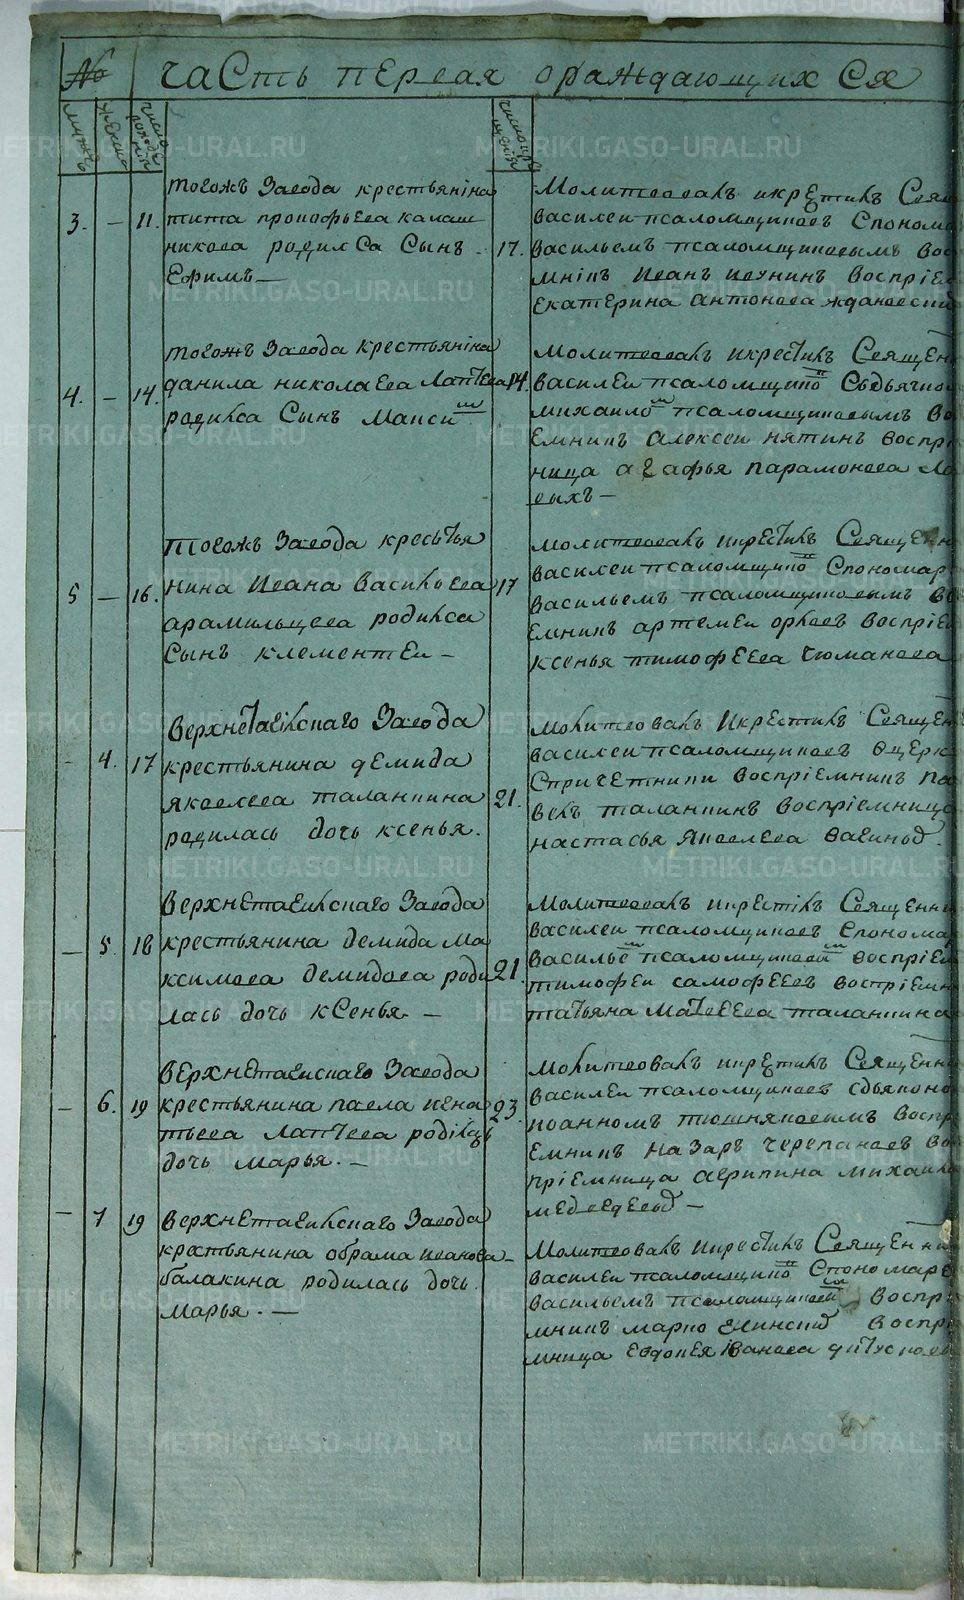 № часть первая ораждающихся
мужъ
женскъ
число рожденія
число крещенія
тогожъ Завода крестьяніна
3. — 11. тита прокофьева калаш
никова родилса Сынъ
Ефимъ —
17.
Молитвовалъ икрѣтилъ Свя
василеи псаломщиковъ Спонома
васильемъ псаломщиковымъ вос
мнікъ иванъ воспріем
екатерина антонова
тогожъ Завода крестьяніна
4. — 14. данила николаева Лаптева
родилса Сынъ Макси м
14.
Молитвовалъ икрестилъ Священ
василеи псаломщико въ Сдьячко
михаило м псаломщиковымъ во
емникъ алексеи пятинъ воспрі
ница агафья парамонова Ла
выхъ —
Тогожъ Завода крестья
5 — 16. нина Ивана Васильева
арамильцева родилса
Сынъ клементеи —
17
молитвовалъ икрестилъ Священ
василеи псаломщико въ Спономар
васильемъ псаломщиковымъ во
емникъ артемеи орловъ воспріе
ксенья тимофеева чюманова
Верхнетагілскаго Завода
— 4. 17 крестьянина демида
яковлева таланкина
родилась дочь ксенья.
21.
Молитвовалъ Икрестилъ Священ
василеи псаломщиковъ
Спричетники воспріемникъ па
велъ таланкинъ воспріемница
настасья яковлева
Верхнетагилскаго Завода
— 5. 18 крестьянина демида Ма
ксимова демидова роди
лась дочь ксенья —
21
Молитвовалъ икрестілъ Священни
василеи псаломщиковъ Спонома
василье м псаломщиковы м воспріем
тимофеи самофеевъ воспріемн
татьяна Матвеева таланкина
Верхнетагилскаго Завода
— 6. 19 крестьянина павла игна
тьева Лаптева роділась
дочь марья. —
23.
Молитвовалъ икретилъ Священни
василеи псаломщиковъ Сдьяконо
иоанномъ тюшняковымъ воспрі
емникъ назаръ черепановъ вос
пріемница агрипина михаило
медведевы —
— 7 19 Верхнетагилскаго Завода
крестьянина обрама иванова
балакина родилась дочь
марья. —
Молитвовалъ икрестилъ Священни
василеи псаломщико въ Спономаре
васильемъ псаломщиковы м воспрі
мникъ марко елински воспріе
мница евдокея іванова